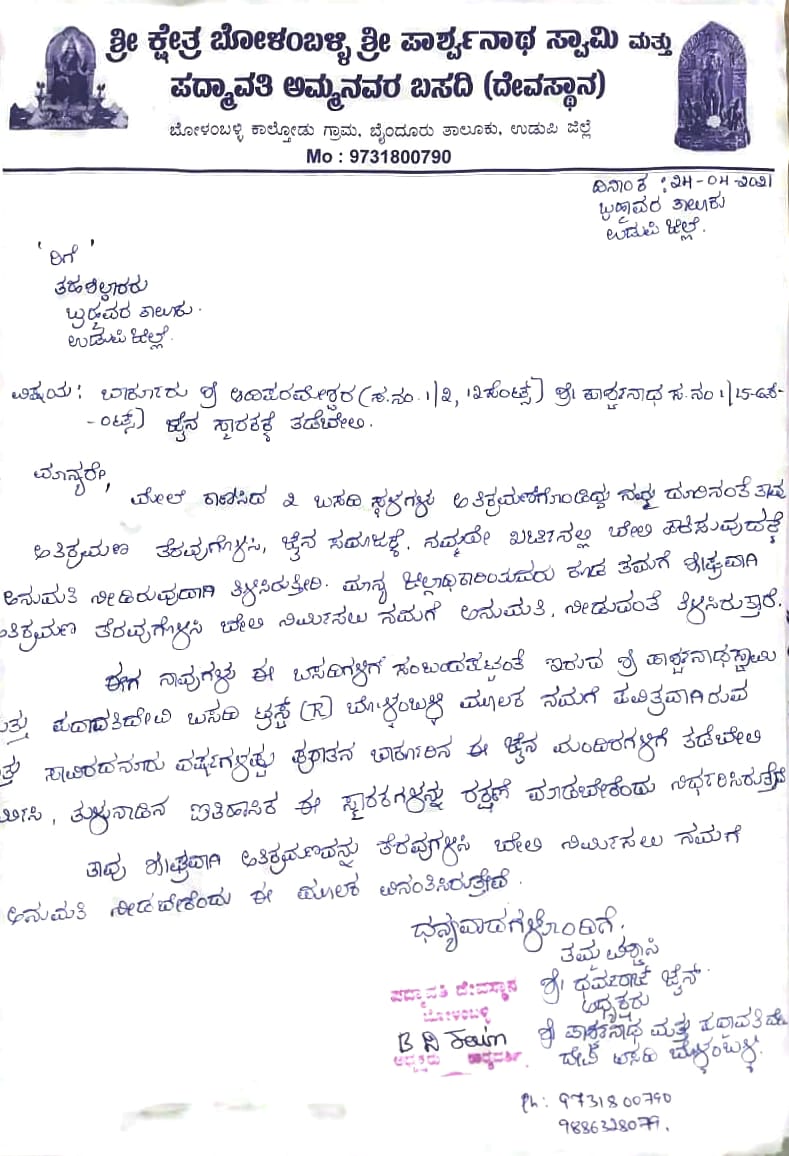 ಶ್ರೀ ಕ್ಷೇತ್ರ ಬೋಳಂಬಳ್ಳಿ ಶ್ರೀ ಪಾರ್ಶ್ವನಾಥ ಸ್ವಾಮಿ ಮತ್ತು
ಪದ್ಮಾವತಿ ಅಮ್ಮನವರ ಬಸದಿ (ದೇವಸ್ಥಾನ)
ಬೋಳಂಬಳ್ಳಿ ಕಾಲ್ತೋಡು ಗ್ರಾಮ, ಬೈಂದೂರು ತಾಲೂಕು, ಉಡುಪಿ ಜಿಲ್ಲೆ
Mo : 9731800790
ದಿನಾಂಕ : 24-04-2021
ಬ್ರಹ್ಮಾವರ ತಾಲೂಕು
ಉಡುಪಿ ಜಿಲ್ಲೆ.
'ರಿಗೆ'
ತಹಶಿಲ್ದಾರರು
ಬ್ರಹ್ಮಾವರ ತಾಲೂಕು.
ಉಡುಪಿ ಜಿಲ್ಲೆ.
ವಿಷಯ: ಬಾರ್ಕೂರು ಶ್ರೀ ಆದಿಪರಮೇಶ್ವರ (ಸ.ನಂ. 1/2, 12 ಸೆಂಟ್ಸ್) ಶ್ರೀ ಪಾರ್ಶ್ವನಾಥ ಸ.ನಂ
ಜೈನ ಸ್ಮಾರಕಕ್ಕೆ ತಡೆಬೇಲಿ.
ಮಾನ್ಯರೇ,
ಮೇಲೆ ಕಾಣಿಸಿದ 2 ಬಸದಿ ಸ್ಥಳಗಳು ಅತಿಕ್ರಮಣಗೊಂಡಿದ್ದು ನಮ್ಮ ದೂರಿನಂತೆ ತಾವು
ಅತಿಕ್ರಮಣ ತೆರವುಗೊಳಿಸಿ, ಜೈನ ಸಮಾಜಕ್ಕೆ, ನಮ್ಮದೇ ಖರ್ಚಿನಲ್ಲಿ ಬೇಲಿ ಹಾಕಿಸುವುದಕ್ಕೆ
ಅನುಮತಿ ನೀಡಿರುವುದಾಗಿ ತಿಳಿಸಿರುತ್ತೀರಿ. ಮಾನ್ಯ ಜಿಲ್ಲಾಧಿಕಾರಿಯವರು ಕೂಡ ತಮಗೆ ಶೀಘ್ರವಾಗಿ
ಅತಿಕ್ರಮಣ ತೆರವುಗೊಳಿಸಿ ಬೇಲಿ ನಿರ್ಮಿಸಲು ನಮಗೆ ಅನುಮತಿ, ನೀಡುವಂತೆ ತಿಳಿಸಿರುತ್ತಾರೆ.
ಈಗ ನಾವುಗಳು ಈ ಬಸದಿಗಳಿಗೆ ಸಂಬಂದಪಟ್ಟಂತೆ ಇರುವ ಶ್ರೀ ಪಾರ್ಶ್ವನಾಥಸ್ವಾಮಿ
ಮತ್ತು ಪದ್ಮಾವತಿದೇವಿ ಬಸದಿ ಟ್ರಸ್ಟ್ (R) ಬೋಳಂಬಳ್ಳಿ ಮೂಲಕ ನಮಗೆ ಪವಿತ್ರವಾಗಿರುವ
ಮತ್ತು ಸಾವಿರದನೂರು ವರ್ಷಗಳಷ್ಟು ಪುರಾತನ ಬಾರ್ಕೂರಿನ ಈ ಜೈನ ಮಂದಿರಗಳಿಗೆ ತಡೆಬೇಲಿ
ತುಳುನಾಡಿನ ಐತಿಹಾಸಿಕ ಈ ಸ್ಮಾರಕಗಳನ್ನು ರಕ್ಷಣೆ ಮಾಡಬೇಕೆಂದು ನಿರ್ಧರಿಸಿರುತ್ತೇವೆ
ತಾವು ಶೀಘ್ರವಾಗಿ ಅತಿಕ್ರಮಣವನ್ನು ತೆರವುಗಳಿಸಿ ಬೇಲಿ ನಿರ್ಮಿಸಲು ನಮಗೆ
ಅನುಮತಿ ನೀಡಬೇಕೆಂದು ಈ ಮೂಲಕ ವಿನಂತಿಸಿರುತ್ತೇವೆ.
ಧನ್ಯವಾದಗಳೊಂದಿಗೆ.
ತಮ್ಮ ವಿಶ್ವಾಸಿ
ಶ್ರೀ ಧರ್ಮರಾಜ ಜೈನ್.
ಅಧ್ಯಕ್ಷರು
ಶ್ರೀ ಪಾರ್ಶ್ವನಾಥ ಮತ್ತು ಪದ್ಮಾವತಿ
ಬಸದಿ ಬೋಳಂಬಳ್ಳಿ.
ಪದ್ಮಾವತಿ ದೇವಸ್ಥಾನ
ಬೋಳಂಬಳ್ಳಿ
B D Jain
ಅಧ್ಯಕ್ಷರು ಕಾರ್ಯದರ್ಶಿ
Ph: 9731800790
9886328079.